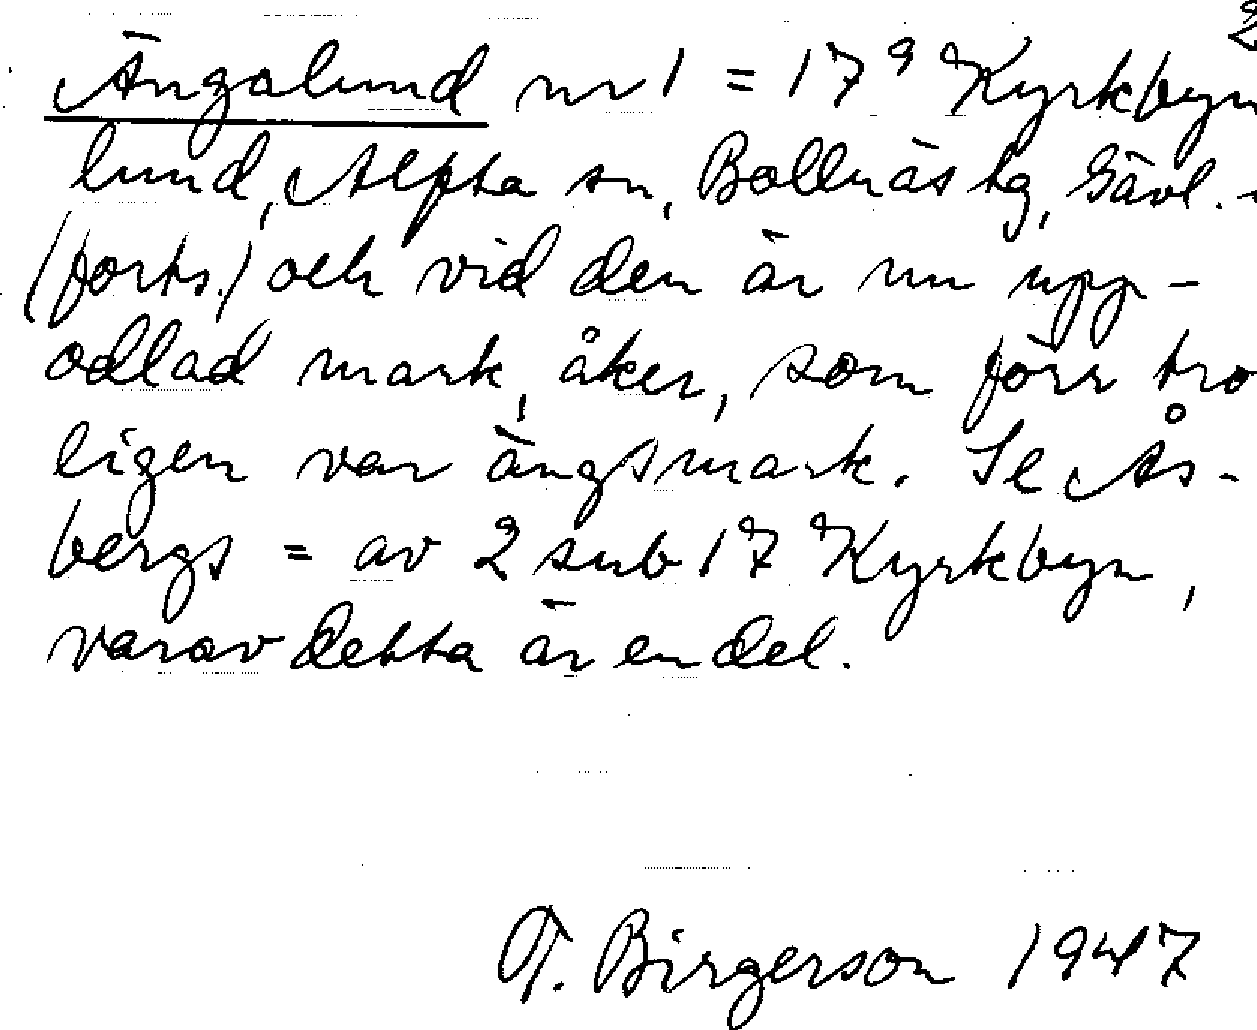 2
Ängalund nr 1 = 17⁹ Kyrkbyn
lund, Alfta sn, Bollnäs tg, Gävl.-
(forts.) och vid den är nu upp-
odlad mark, åker, som förr tro
ligen var ängsmark. Se Ås-
bergs = av 2 sub 17 Kyrkbyn,
varav detta är en del.
T. Birgerson 1947